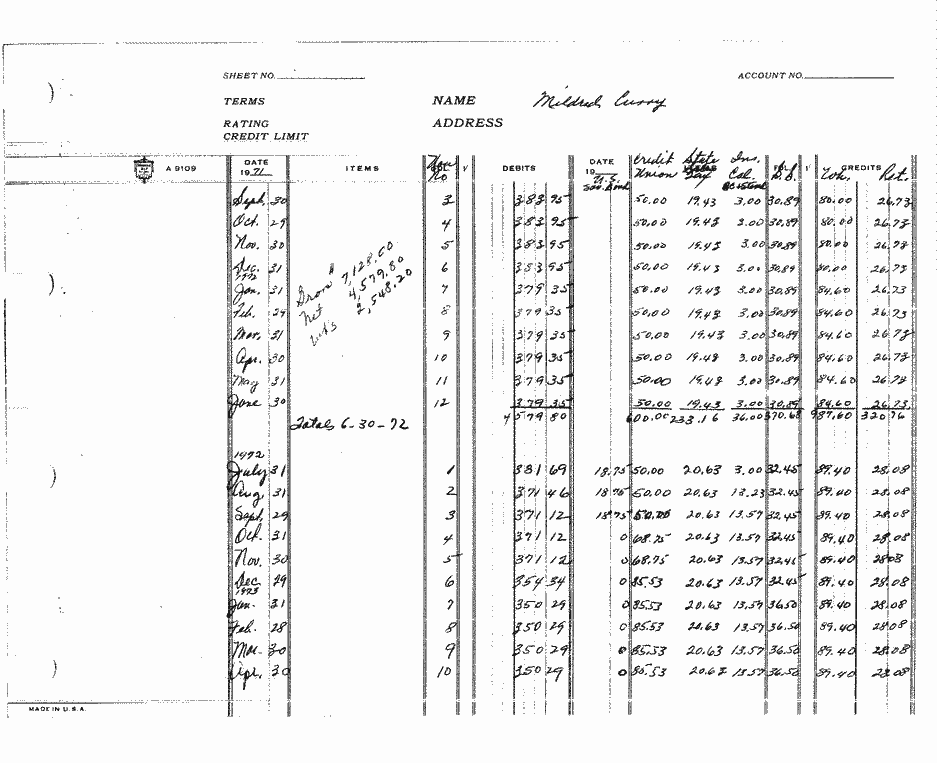 SHEET NO. ACCOUNT NO.
TERMS NAME Mildred Curry
RATING ADDRESS
CREDIT LIMIT
A 9109 DATE 1971 ITEMS DEBITS DATE 19 U.S. Sav. Bond Credit Union State Tax Ins. Cal. CREDITS Ret.
Sept. 30 3 383 95 50.00 19.43 3.00 30.89 80.00 26.73
Oct. 29 4 383 95 50.00 19.43 3.00 30.89 80.00 26.73
Nov. 30 5 383 95 50.00 19.43 3.00 30.89 80.00 26.73
Dec. 31 6 383 95 50.00 19.43 3.00 30.89 80.00 26.73
1972
Jan. 31 7 379 35 50.00 19.43 3.00 30.89 84.60 26.73
Feb. 29 8 379 35 50.00 19.43 3.00 30.89 84.60 26.73
Mar. 31 9 379 35 50.00 19.43 3.00 30.89 84.60 26.73
Apr. 30 10 379 35 50.00 19.43 3.00 30.89 84.60 26.73
May 31 11 379 35 50.00 19.43 3.00 30.89 84.60 26.73
June 30 12 379 35 50.00 19.43 3.00 30.89 84.60 26.73
Gross $ 7,128.00
Net 4,579.80
2,548.20
Totals 6-30-72 4579 80 600.00 233.16 36.00 370.68 987.60 320.76
1972
July 31 1 381 69 18.75 50.00 20.63 3.00 32.45 89.40 28.08
Aug 31 2 371 46 18.75 50.00 20.63 13.23 32.45 89.40 28.08
Sept. 29 3 371 12 18.75 50.00 20.63 13.57 32.45 89.40 28.08
Oct. 31 4 371 12 0 68.75 20.63 13.57 32.45 89.40 28.08
Nov. 30 5 371 12 0 68.75 20.63 13.57 32.45 89.40 28.08
Dec 29 6 354 34 0 85.53 20.63 13.57 32.45 89.40 28.08
1973
Jan. 31 7 350 29 0 85.53 20.63 13.57 36.50 89.40 28.08
Feb. 28 8 350 29 0 85.53 20.63 13.57 36.50 89.40 28.08
Mar. 30 9 350 29 0 85.53 20.63 13.57 36.50 89.40 28.08
Apr. 30 10 350 29 0 85.53 20.63 13.57 36.50 89.40 28.08
MADE IN U.S.A.